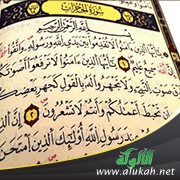 سُورَةُ الحُجُرَاتِ
بِسْمِ اللَّهِ الرَّحْمَٰنِ الرَّحِيمِ
يَٰٓأَيُّهَا الَّذِينَ ءَامَنُوا لَا تُقَدِّمُوا بَيْنَ يَدَيِ اللَّهِ وَرَسُولِهِۦ وَاتَّقُوا
سَمِيعٌ عَلِيمٌ ١ يَٰٓأَيُّهَا الَّذِينَ ءَامَنُوا لَا تَرْفَعُوٓا أَصْوَٰتَكُمْ
صَوْتِ النَّبِيِّ وَلَا تَجْهَرُوا لَهُۥ بِالْقَوْلِ كَجَهْرِ بَعْضِكُمْ
أَن تَحْبَطَ أَعْمَٰلُكُمْ وَأَنتُمْ لَا تَشْعُرُونَ ٢ إِنَّ الَّذِينَ
عِندَ رَسُولِ اللَّهِ أُولَٰٓئِكَ الَّذِينَ امْتَحَنَ
الألوكة
www.alukah.net